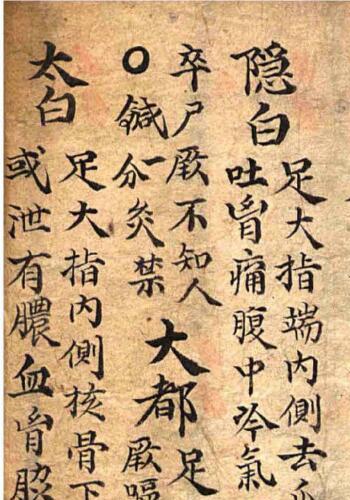 隐白
足大指端内側去
吐胷痛腹中冷氣
卒尸厥不知人
〇鍼一分灸禁
大都
足
厥
太白
足大指内側核骨下
或泄有膿血胷脇